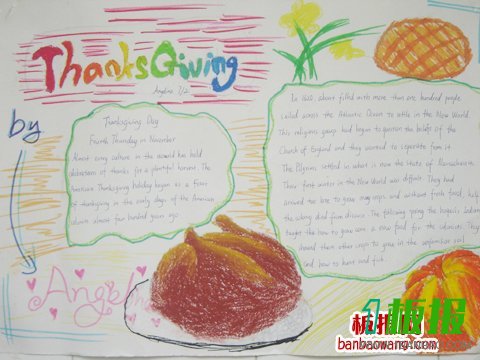 ThanksGiving
Angelina 7/2
by
Angelina
Thanksgiving Day
Fourth Thursday in November
Almost every culture in the world has held
celebrations of thanks for a plentiful harvest. The
American Thanksgiving holiday began as a feast
of thanksgiving in the early days of the American
colonies almost four hundred years ago
In 1620, a boat filled with more than one hundred people
sailed across the Atlantic Ocean to settle in the New World.
This religious group had begun to question the beliefs of the
Church of England and they wanted to separate from it.
The Pilgrims settled in what is now the state of Massachusetts.
Their first winter in the New World was difficult. They had
arrived too late to grow many crops, and without fresh food, half
the colony died from disease. The following spring the Iroquois Indians
taught them how to grow corn, a new food for the colonists. They
showed them other crops to grow in the unfamiliar soil
and how to hunt and fish.
板报
banbaowang.com